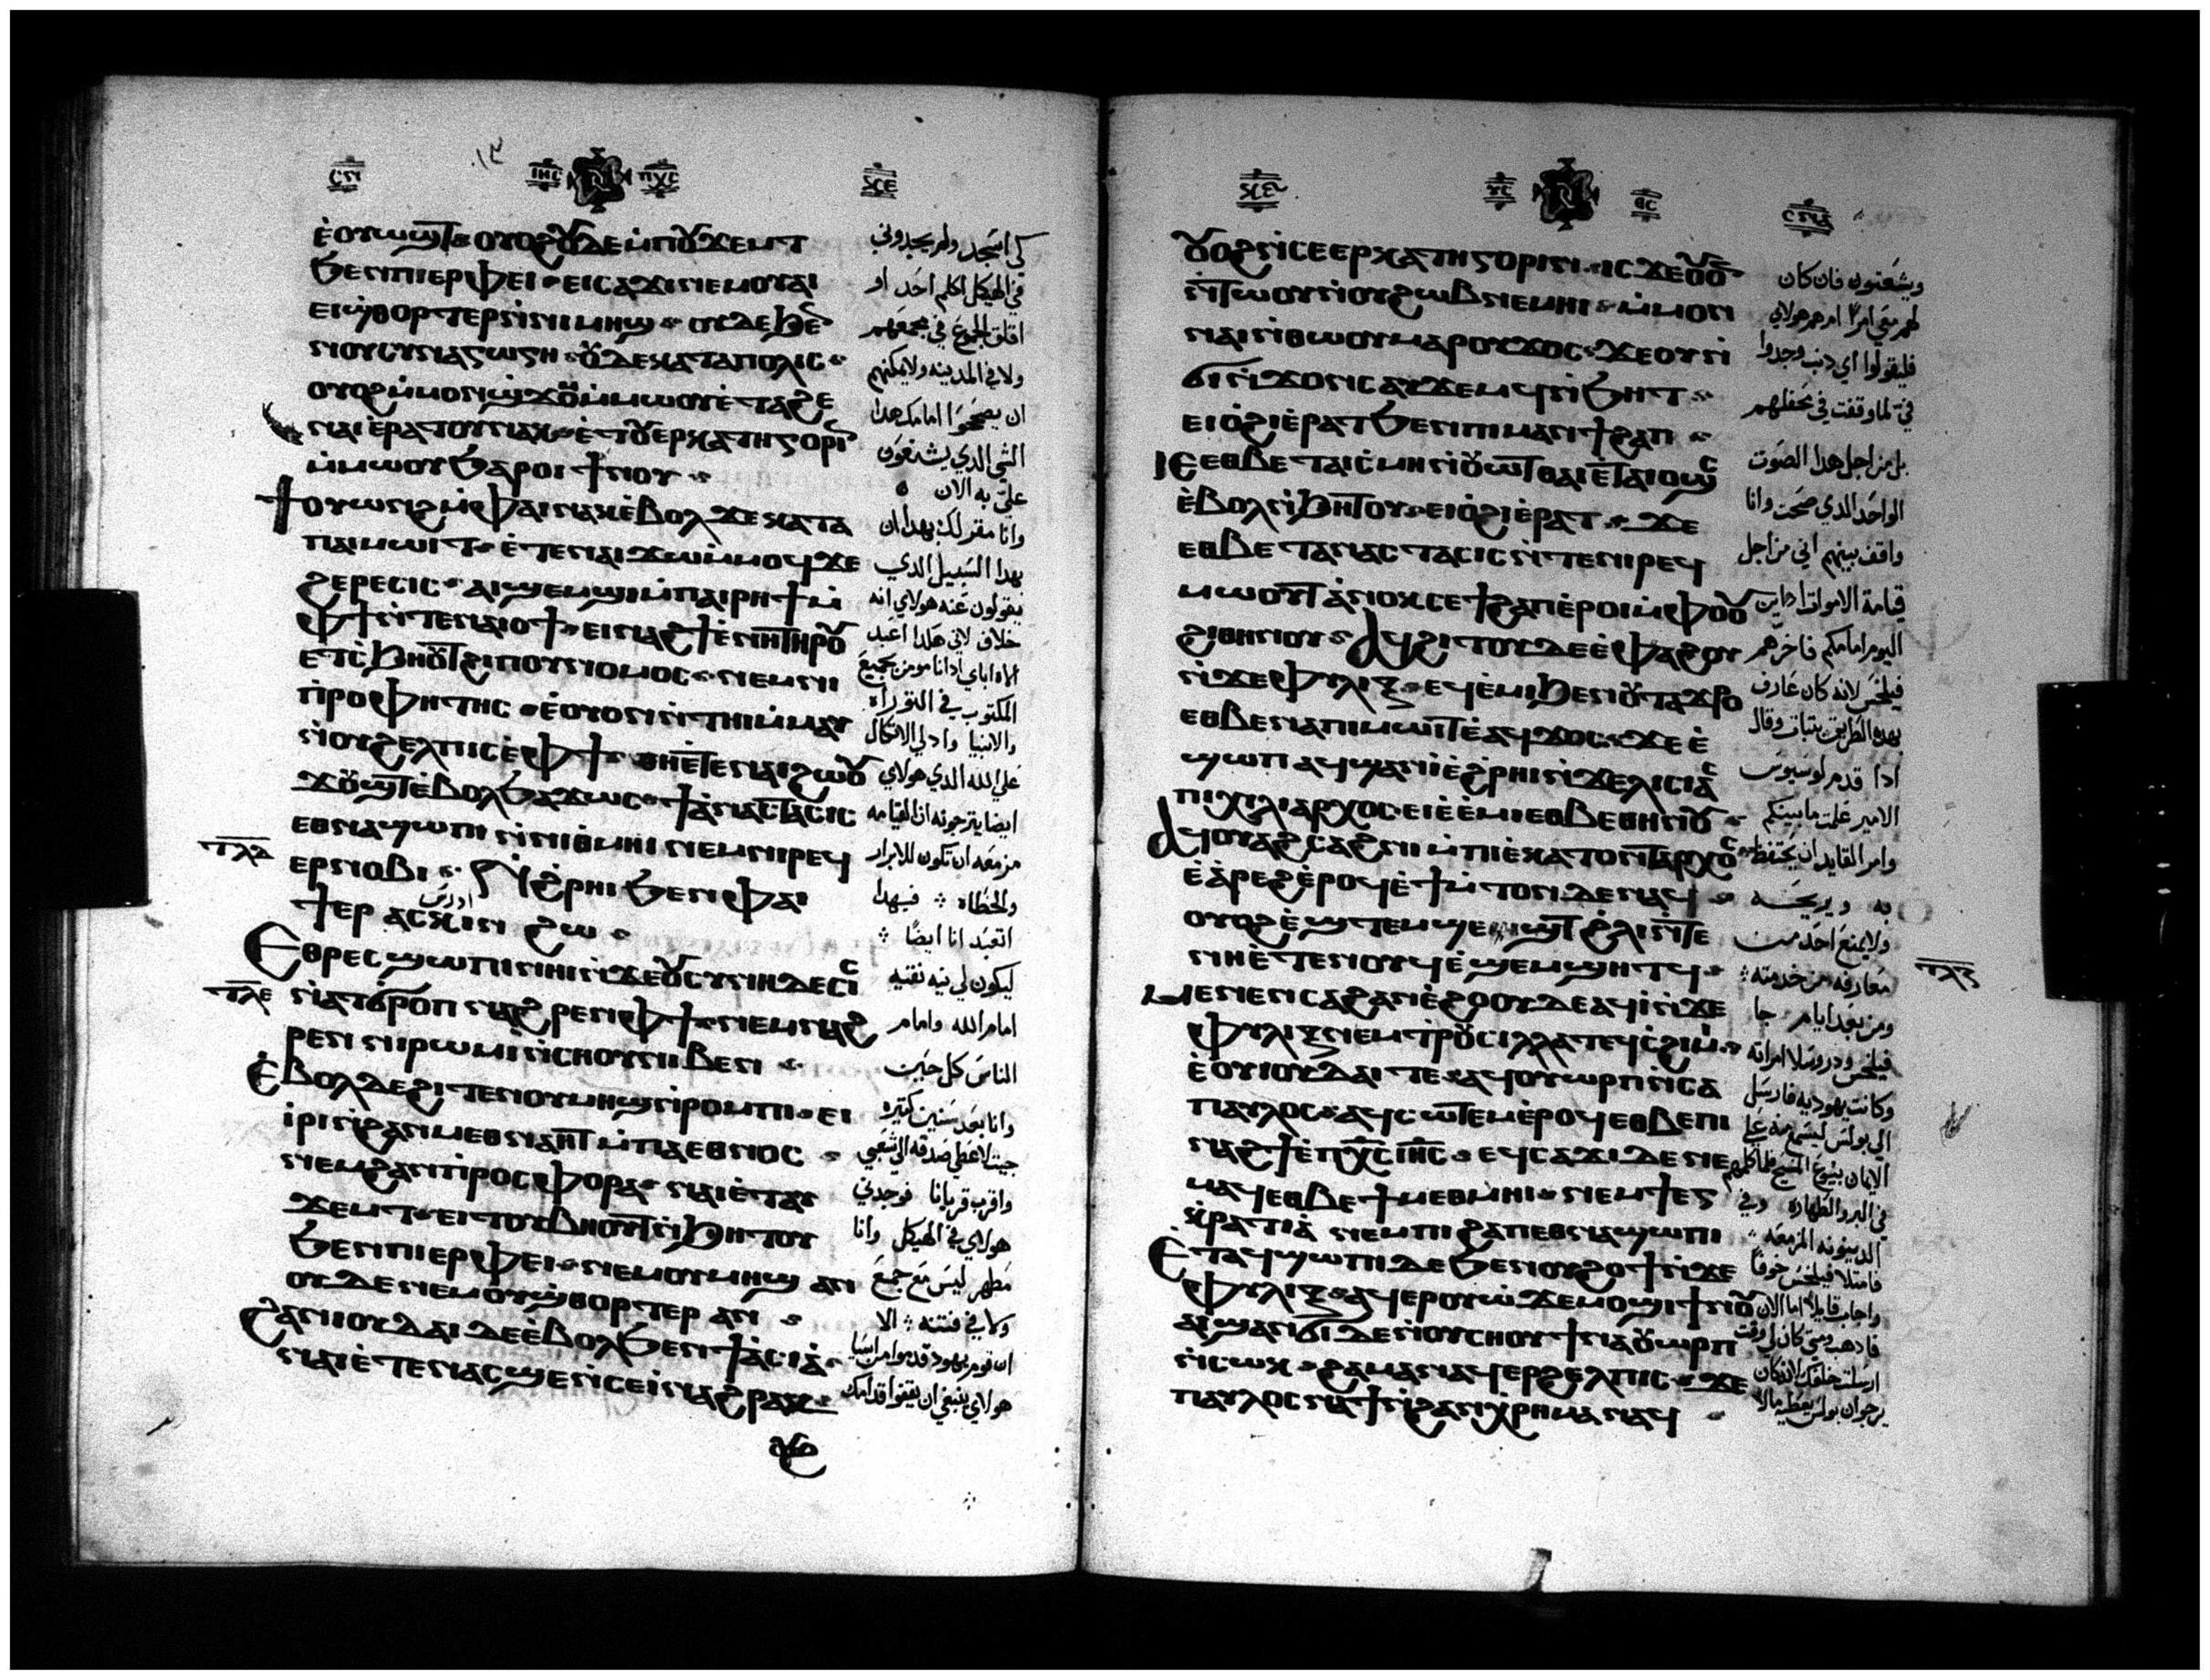 ⲥⲛⲓ ⲓⲏⲥ ⲡⲭⲥ
ⲉ̀ⲟⲩⲱϣⲧ ⲟⲩⲟϩ ⲟⲩⲇⲉ ⲙ̀ⲡⲟⲩϫⲉⲙⲧ
ϧⲉⲛⲡⲓⲉⲣⲫⲉⲓ ⲉⲓⲥⲁϫⲓ ⲛⲉⲙⲟⲩⲁⲓ
ⲉⲓϣ̀ⲑⲟⲣⲧⲉⲣ ⲛ̀ⲛⲓⲙⲏϣ ⲟⲩⲇⲉ ϧⲉⲛ
ⲛⲟⲩⲥⲩⲛⲁⲅⲱⲅⲏ ⲟⲩⲇⲉ ⲕⲁⲧⲁⲡⲟⲗⲓⲥ
ⲟⲩⲟϩ ⲙ̀ⲙⲟⲛϣ̀ϫⲟⲙ ⲙ̀ⲙⲱⲟⲩ ⲉ̀ⲧⲁϩⲉ
ⲛⲁⲓ ⲉ̀ⲣⲁⲧⲟⲩ ⲛⲁⲕ ⲉ̀ⲧⲟⲩⲉⲣⲕⲁⲧⲏⲅⲟⲣⲓⲛ
ⲙ̀ⲙⲱⲟⲩ ϧⲁⲣⲟⲓ ϯⲛⲟⲩ
ϯⲟⲩⲱⲛϩ ⲙ̀ⲫⲁⲓ ⲛⲁⲕ ⲉ̀ⲃⲟⲗ ϫⲉ ⲕⲁⲧⲁ
ⲡⲁⲓⲙⲱⲓⲧ ⲉ̀ⲧⲉⲛⲁⲓ ϫⲱ ⲙ̀ⲙⲟϥ ϫⲉ
ϩⲉⲣⲉⲥⲓⲥ ⲁⲓϣⲉⲙϣⲓ ⲙ̀ⲡⲁⲓⲣⲏϯ ⲙ̀
ⲫϯ ⲛ̀ⲧⲉⲛⲁⲓⲟϯ ⲉⲓⲛⲁϩϯ ⲉ̀ⲛⲏ ⲧⲏⲣⲟⲩ
ⲉⲧⲥ̀ϧⲏⲟⲩⲧ ϩⲓ ⲡⲓⲛⲟⲙⲟⲥ ⲛⲉⲙ ⲛⲓ
ⲡⲣⲟⲫⲏⲧⲏⲥ ⲉ̀ⲟⲩⲟⲛ ⲛ̀ⲧⲏⲓ ⲙ̀ⲙⲁⲩ
ⲛ̀ⲟⲩϩⲉⲗⲡⲓⲥ ⲉ̀ⲫϯ ⲑⲏ ⲉ̀ⲧⲉⲛⲁⲓ ϩⲱⲟⲩ
ϫⲟⲩϣⲧ ⲉ̀ⲃⲟⲗ ϧⲁϫⲱⲥ ϯⲁ̀ⲛⲁⲥⲧⲁⲥⲓⲥ
ⲉⲑⲛⲁϣⲱⲡⲓ ⲛ̀ⲛⲓⲑ̀ⲙⲏⲓ ⲛⲉⲙ ⲛⲓⲣⲉϥ
ⲉⲣⲛⲟⲃⲓ ⲛ̀ϩ̀ⲣⲏⲓ ϧⲉⲛ ⲫⲁⲓ
ϯⲉⲣ ⲁⲥⲕⲓⲛ ϩⲱ
ⲉⲑⲣⲉⲥϣⲱⲡⲓ ⲛⲏⲓ ⲛ̀ϫⲉ ⲟⲩⲥⲩⲛⲏⲇⲉⲥⲓⲥ
ⲛ̀ⲁⲧϭⲣⲟⲡ ⲛⲁϩⲣⲉⲛ ⲫϯ ⲛⲉⲙ ⲛⲁϩ
ⲣⲉⲛ ⲛⲓⲣⲱⲙⲓ ⲛ̀ⲥⲛⲟⲩ ⲛⲓⲃⲉⲛ
ⲉ̀ⲃⲟⲗ ⲇⲉ ϩⲓⲧⲉⲛ ⲟⲩⲙⲏϣ ⲛ̀ⲣⲟⲙⲡⲓ ⲉⲓ
ⲓ̀ⲣⲓ ⲛ̀ϩⲁⲛⲙⲉⲑⲛⲁⲏⲧ ⲙ̀ⲡⲁⲉⲑⲛⲟⲥ
ⲛⲉⲙ ϩⲁⲛⲡⲣⲟⲥⲫⲟⲣⲁ ⲛⲁⲓ ⲉ̀ⲧⲁⲩ
ϫⲉⲙⲧ ⲉⲓⲧⲟⲩⲃⲏⲟⲩⲧ ⲛ̀ϧⲏⲧⲟⲩ
ϧⲉⲛ ⲡⲓⲉⲣⲫⲉⲓ ⲛⲉⲙ ⲟⲩⲙⲏϣ ⲁⲛ
ⲟⲩⲇⲉ ⲛⲉⲙ ⲟⲩϣ̀ⲑⲟⲣⲧⲉⲣ ⲁⲛ
ϩⲁⲛⲓⲟⲩⲇⲁⲓ ⲇⲉ ⲉ̀ⲃⲟⲗ ϧⲉⲛ ϯⲁ̀ⲥⲓⲁ̀
ⲛⲁⲓ ⲉ̀ⲧⲉⲛⲁⲥϣⲉ ⲛ̀ⲥⲉⲓ̀ ⲛⲁϩⲣⲁⲕ
كي اسجد ولم يجدوني
في الهيكل اكلم احد او
اقلق الجموع في مجمعهم
ولا في المدينه ولا يمكنهم
ان يصححوا امامك هذا
الشي الذي يشنعون
علي به الان
وانا مقر لك بهذا ان
بهذا السبيل الذي
يقولون عنه هولاي انه
خلاف لاني هكذا اعبد
اله اباي اذ انا مومن بجميع
المكتوب في التوراه
والانبيا واذ لي الاتكال
على الله الذي هولاي
ايضا يترجونه ان القيامه
مزمعه ان تكون للابرار
والخطاه فبهذا
اتعبد انا ايضا
ليكون لي نيه نقيه
امام الله وامام
الناس كل حين
وانا بعد سنين كتيره
جيت لاعطي صدقه الي شعبي
واقرب قربانا فوجدني
هولاي في الهيكل وانا
مطهر ليس مع جمع
ولا في فتنه الا
ان قوم يهود قدموا من اسيا
هولاي ينبغي ان يقفوا قدامك
ⲟⲩⲟϩ ⲛ̀ⲥⲉⲉⲣⲕⲁⲧⲏⲅⲟⲣⲓⲛ ⲓⲥϫⲉ ⲟⲩⲟⲛ
ⲛ̀ⲧⲱⲟⲩ ⲛ̀ⲟⲩϩⲱⲃ ⲛⲉⲙⲏⲓ ⲙ̀ⲙⲟⲛ
ⲛⲁⲓ ⲛ̀ⲑⲱⲟⲩ ⲙⲁⲣⲟⲩϫⲟⲥ ϫⲉ ⲟⲩ ⲛ̀
ϭⲓⲛ̀ϫⲟⲛⲥ ⲁⲩϫⲉⲙϥ ⲛ̀ϧⲏⲧ
ⲉⲓⲟ̀ϩⲓ ⲉ̀ⲣⲁⲧ ϧⲉⲛ ⲡⲓⲙⲁⲛϯϩⲁⲡ
ⲓⲉ ⲉⲑⲃⲉ ⲧⲁⲓⲥ̀ⲙⲏ ⲛ̀ⲟⲩⲱⲧ ⲑⲁⲓ ⲉ̀ⲧⲁⲓⲟϣⲥ
ⲉ̀ⲃⲟⲗ ⲛ̀ϧⲏⲧⲟⲩ ⲉⲓⲟ̀ϩⲓ ⲉ̀ⲣⲁⲧ ϫⲉ
ⲉⲑⲃⲉ ⲧⲁⲛⲁⲥⲧⲁⲥⲓⲥ ⲛ̀ⲧⲉⲛⲓⲣⲉϥ
ⲙⲱⲟⲩⲧ ⲁ̀ⲛⲟⲕ ⲥⲉϯϩⲁⲡ ⲉ̀ⲣⲟⲓ ⲙ̀ⲫⲟⲟⲩ
ϩⲓⲑⲏⲛⲟⲩ ⲁϥϩⲓⲧⲟⲩ ⲇⲉ ⲉ̀ⲫⲁϩⲟⲩ
ⲛ̀ϫⲉ ⲫⲩⲗⲓⲝ ⲉϥⲉ̀ⲙⲓ ϧⲉⲛ ⲟⲩⲧⲁϫⲣⲟ
ⲉⲑⲃⲉ ⲛⲁⲡⲓⲙⲱⲓⲧ ⲉ̀ⲁϥϫⲟⲥ ϫⲉ ⲉ̀
ϣⲱⲡ ⲁϥϣⲁⲛⲓ̀ ⲉ̀ϩ̀ⲣⲏⲓ ⲛ̀ϫⲉ ⲗⲓⲥⲓⲁⲥ
ⲡⲓⲭⲓⲗⲓⲁⲣⲭⲟⲥ ⲉⲓⲉ̀ⲉ̀ⲙⲓ ⲉⲑⲃⲉⲑⲏⲛⲟⲩ
ⲁϥⲟⲩⲁϩⲥⲁϩⲛⲓ ⲙ̀ⲡⲓⲉ̀ⲕⲁⲧⲟⲛⲧⲁⲣⲭⲟⲥ
ⲉ̀ⲁ̀ⲣⲉϩ ⲉ̀ⲣⲟϥ ⲉ̀ϯⲙ̀ⲧⲟⲛ ⲇⲉ ⲛⲁϥ
ⲟⲩⲟϩ ⲉ̀ϣⲧⲉⲙϣⲉϣⲧ ϩ̀ⲗⲓ ⲛ̀ⲧⲉ
ⲛⲏ ⲉ̀ⲧⲉⲛⲟⲩϥ ⲉ̀ϣⲉⲙϣⲏⲧϥ
ⲙⲉⲛⲉⲛⲥⲁ ϩⲁⲛⲉ̀ϩⲟⲟⲩ ⲇⲉ ⲁϥⲓ̀ ⲛ̀ϫⲉ
ⲫⲩⲗⲓⲝ ⲛⲉⲙ ⲧⲣⲟⲩⲥⲓⲗⲗⲁ ⲧⲉϥⲥ̀ϩⲓⲙⲓ
ⲉ̀ⲟⲩⲓⲟⲩⲇⲁⲓ ⲧⲉ ⲁϥⲟⲩⲱⲣⲡ ⲛ̀ⲥⲁ
ⲡⲁⲩⲗⲟⲥ ⲁϥⲥⲱⲧⲉⲙ ⲉ̀ⲣⲟϥ ⲉⲑⲃⲉ ⲡⲓ
ⲛⲁϩϯ ⲉ̀ⲡⲭⲥ ⲓⲏⲥ ⲉϥⲥⲁϫⲓ ⲇⲉ ⲛⲉ
ⲙⲁϥ ⲉⲑⲃⲉ ϯⲙⲉⲑⲙⲏⲓ ⲛⲉⲙ ϯⲉⲅ
ⲕ̀ⲣⲁⲧⲓⲁ̀ ⲛⲉⲙ ⲡⲓϩⲁⲡ ⲉⲑⲛⲁϣⲱⲡⲓ
ⲉ̀ⲧⲁϥϣⲱⲡⲓ ⲇⲉ ϧⲉⲛ ⲟⲩϩⲟϯ ⲛ̀ϫⲉ
ⲫⲩⲗⲓⲝ ⲁϥⲉⲣⲟⲩⲱ̀ ϫⲉ ⲙⲟϣⲓ ϯⲛⲟⲩ
ⲁⲓϣⲁⲛϭⲓ ⲇⲉ ⲛ̀ⲟⲩⲥⲛⲟⲩ ϯⲛⲁⲟⲩⲱⲣⲡ
ⲛ̀ⲥⲱⲕ ϩⲁⲙⲁ ⲛⲁϥⲉⲣϩⲉⲗⲡⲓⲥ ϫⲉ
ⲡⲁⲩⲗⲟⲥ ⲛⲁϯ ⲛ̀ϩⲁⲛⲭ̀ⲣⲏⲙⲁ ⲛⲁϥ
ويشنعون فان كان
لهم معي امرا ام هم هولاي
فليقولوا اي ذنب وجدوا
في لما وقفت في محفلهم
بل من اجل هذا الصوت
الواحد الذي صحت وانا
واقف بينهم اني من اجل
قيامة الاموات اداين
اليوم امامكم فاخرهم
فيلخس لانه كان عارف
بهذه الطريق بتبات وقال
اذا قدم لوسيوس
الامير علمت ما بينكم
وامر القايد ان يحتفظ
به ويريحه
ولا يمنع احد من
معارفه من خدمته
ومن بعد ايام جا
فيلخس ودروسلا امراته
وكانت يهوديه فارسل
الي بولس ليسمع منه على
الايمان بيسوع المسيح فلما كلمهم
في البر والطهاره وفي
الدينونه المزمعه
فامتلا فيلخس خوفا
واجاب قايلا اما الان
فاذهب ومتي كان لي وقت
ارسلت خلفك لانه كان
يرجوا ان بولس يعطيه مالا